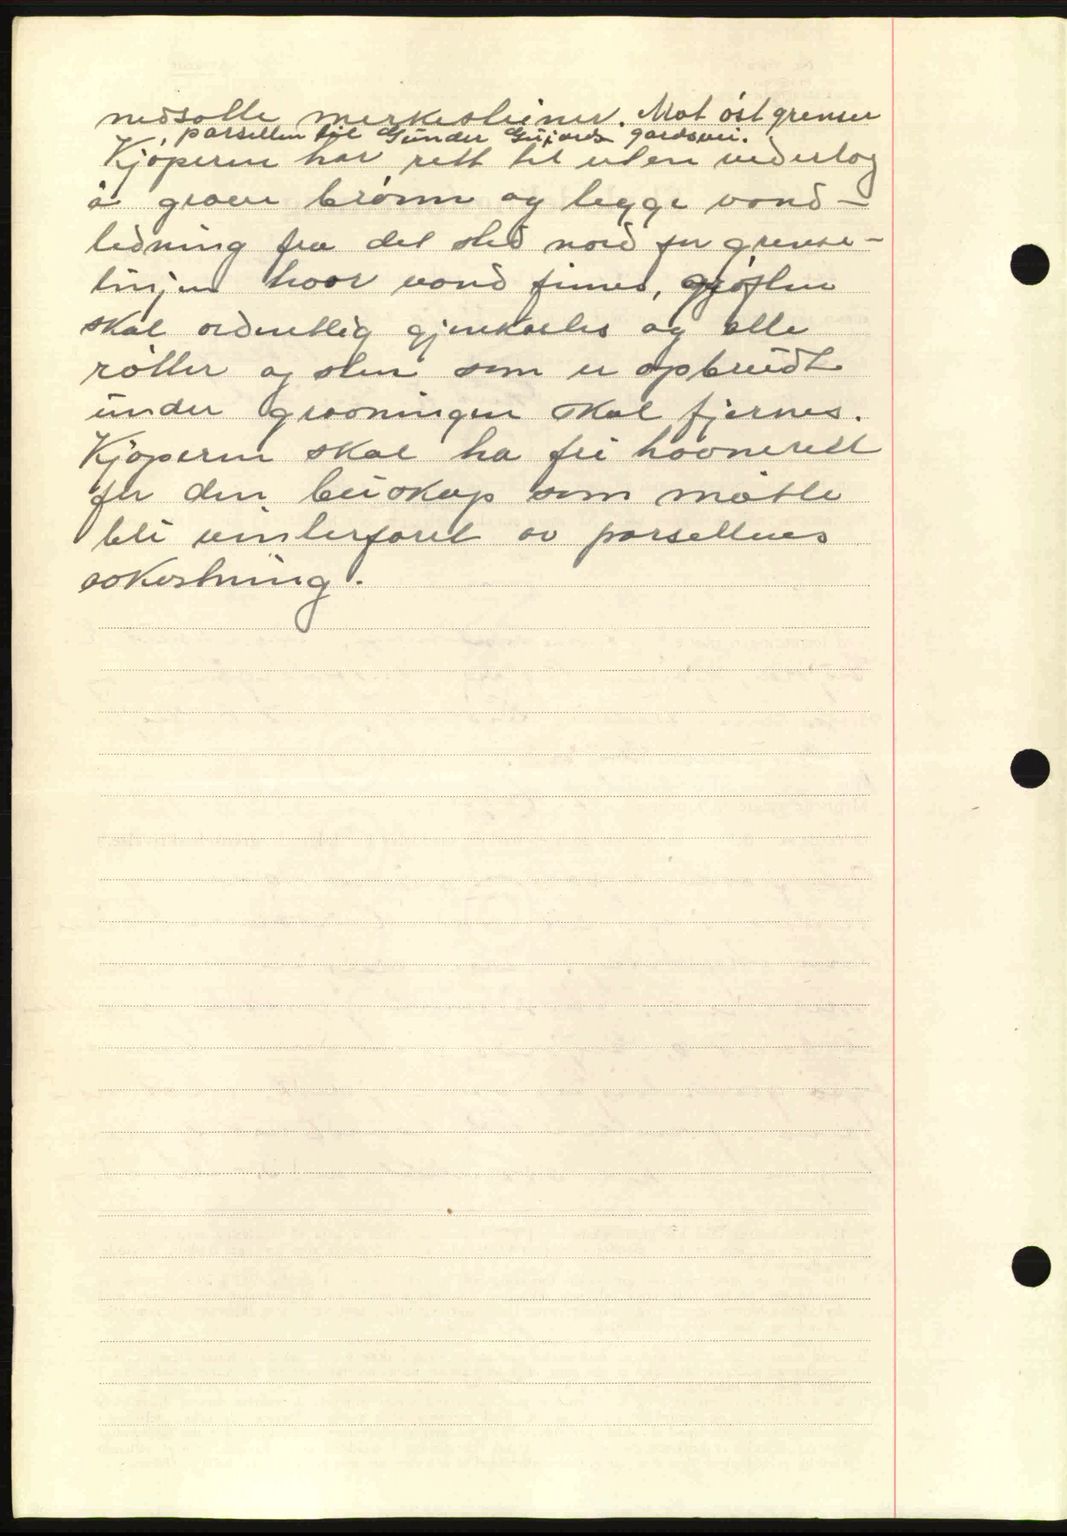 nedsatte merkesteiner. Mot øst grenser
parsellen til Gunder gardsvei.
Kjøperen har rett til uten vederlag
å grave brønn og legge vand-
ledning fra det sted nord for grense-
linjen hvor vand finnes, grøften
skal ordentlig gjenkastes og alle
røtter og sten som er opbrudt
under gravningen skal fjernes.
Kjøperen skal ha fri havnerett
for den buskap som måtte
bli vinterforet av parsellens
avkastning.